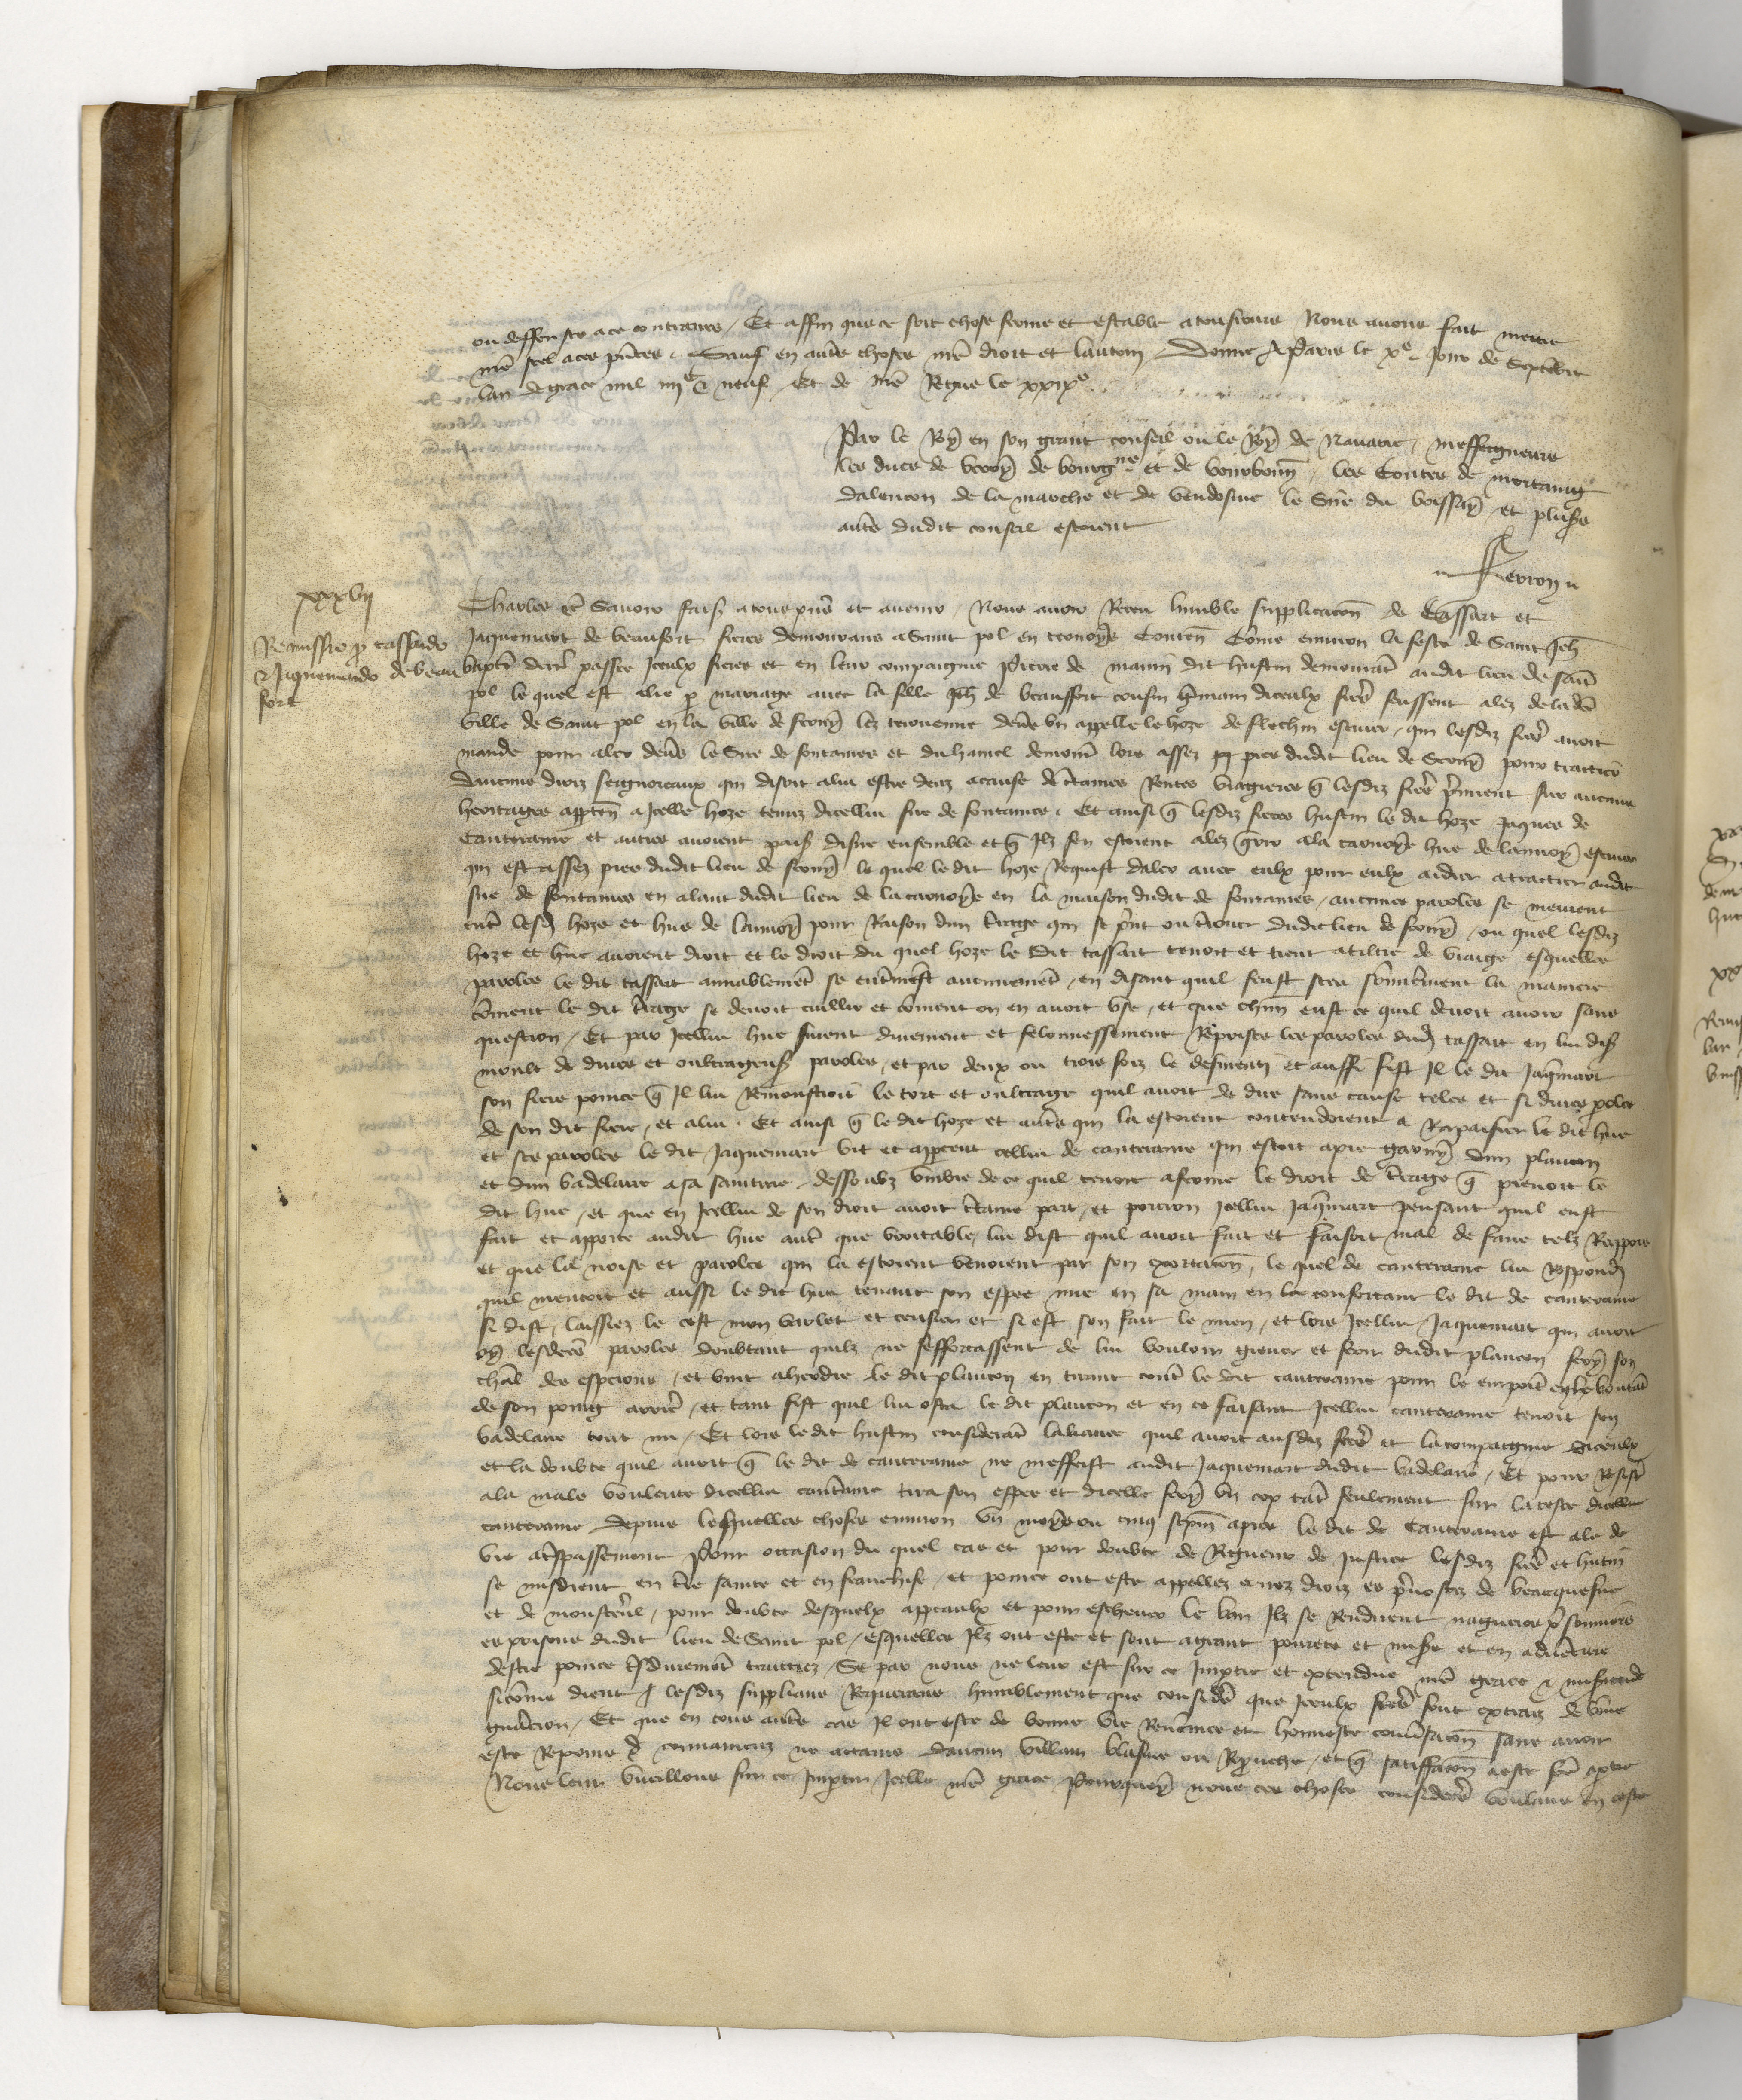 ou deffenses a ce contraires / Et affin que ce soit chose ferme et estable a tousiours Nous auons fait mettre
nre seel a ces pntes / Sauf en autres choses nre droit et lautruy Donne A Paris le xe Jour de Septembre
lan de grace mil iiijc & neuf / Et de nre Regne le xxixe
Par le Roy en son grant conseil ou le Roy de Nauarre / messeigneurs
les ducs de berry de bourgne et de bourbonn / les Contes de mortaing
dalencon de la marche et de vendosme le Sire du boissay et plusrs
autres dudit conseil estoient
Ferron
xxxvij
Remissio pro tassardo
& Jaquemardo de beau
fort
Charles etc Sauoir fais a tous pns et auenir / Nous auoir Receu humble supplicacon de Tassart et
Jaquemart de beaufort freres demourans a Saint pol en ternoys Conten Come enuiron la feste de Saint Jeh
bapte derr passee Iceulx freres et en leur compaignie Pierre de mann dit hustin demourat audit lieu de saint
pol le quel est alie p mariage auec la fille Jeh de beauffort cousin germain diceulx freres feussent alez de lade
ville de Saint pol en la ville de lez terouenne deuers un appelle le hoze de flechin escuier / qui lesdiz freres auoit
mande pour aler deuers le Sire de fontaines et du hamel demourat lors assez pres dudit lieu de pour traictier
daucuns droiz seignoreaux qui disoit a lui estre deuz a cause de certaines Rentes viagieres q lesdiz freres prennent sur aucuns
heritages apptens a Icellui hoze tenuz dicellui sire de fontaines / Et ainsi q lesdiz freres hustin le dit hoze Jaques de
Canteraine et autres auoient pris disne ensemble et q Ilz sen estoient alez querir a la hue de lannoy escuier
qui est assez pres dudit lieu de le quel le dit hoze Requist daler auec eulx pour eulx aidier a traictier audit
sire de fontaines en alant dudit lieu de la en la maison dudit de fontaines / aucunes paroles se meurent
entre lesdiz hoze et hue de lannoy pour Raison dun terrage qui se prent ou terouer dudit lieu de / ou quel lesdiz
hoze et hue auoient droit et le droit du quel hoze le dit tassart tenoit et tient a tiltre de viage esquelles
paroles le dit tassart amiablemet se entremist aucunemet / en disant quil feust sceu sommierement la maniere
coment le dit terrage se deuoit cuillir et coment on en auoit use / et que chun eust ce quil deuoit auoir sans
question / Et par Icellui hue furent diuement et felonnessement Reprises les paroles dudit tassart en lui dis
moult de diuses et oultrageuses paroles / et par deux ou trois foiz le desmenty et aussi fist Il le dit Jaqmart
son frere pource q Il lui Remonstroit le tort et oultrage quil auoit de dire sans cause teles et si diuses poles
de son dit frere / et a lui / Et ainsi q le dit hoze et autres qui la estoient contendoient a Rapaisier le dit hue
et ses paroles le dit Jaquemart vit et apperceut cellui de canteraine qui estoit apres garny dun plancon
et dun badelaire a sa sainture / dessoubz umbre de ce quil tenoit a ferme le droit de terrage q prenoit le
dit hue / et que en Icellui de son droit auoit certaine part / et porcion Icellui Jaqmart pensant quil eust
fait et apporte audit hue autre que veritable / lui dist quil auoit fait et faisoit mal de faire telz Rappors
et que la noise et paroles qui la estoient venoient par son exortacon / le quel de canteraine lui Respondi
quil mentoit et aussi le dit hue tenant son espee nue en sa main en le confortant le dit de canteraine
si dist / laissiez le cest mon varlet et censier et si est son fait le mien / et lors Icellui Jaquemart qui auoit
oy lesdictes paroles doubtant quilz ne sefforcassent de lui vouloir greuer et ferir dudit plancon fery son
cheual des esperons / et vint aherdre le dit plancon en tirant contre le dit canteraine pour le emporter en le boutat
de son poing arriere / et tant fist quil lui osta le dit plancon et en ce faisant Icellui canteraine tenoit son
badelaire tout nu / Et lors le dit hustin considerat laliance quil auoit ausdiz freres et la compaignie diceulx
et la doubte quil auoit q le dit de canteraine ne meffeist audit Jaquemart dudit badelaire / Et pour Resister
a la male voulente dicellui cantraine tira son espee et dicelle fery un cop tat seulement sur la teste dicellui
canteraine depuis lesquelles choses enuiron un moys ou cinq sepmaines apres le dit de Canteraine est ale de
vie a trespassement Pour occasion du quel cas et pour doubte de Rigueur de Justice lesdiz freres et hutin
se misdrent en terre sainte et en franchise / et pource ont este appellez a noz droiz es preuostez de beauquesne
et de monsterul / pour doubte desquelx appeaulx et pour escheuer le ban Ilz se Rendirent nagueres prisonniers
es prisons dudit lieu de Saint pol / esquelles Ilz ont este et sont a grant pourete et misere et en aduenture
destre pource tres durement traittiez / Se par nous ne leur est sur ce Impartie et extendue nre grace & misericorde
sicome dient Lesdiz supplians Requerans humblement que considere que Iceulx freres sont extraiz de bonne
gnacion / Et que en tous autres cas Il ont este de bonne vie Renomee et honneste conuersacon sans auoir
este Repuns conuaincuz ne attains daucun villain blasme ou Reprouche / et q satisfacon a este fce a ptie
Nous leur vueillons sur ce Impartir Icelle nre grace Pourquoy nous ces choses considerees voulans en ceste